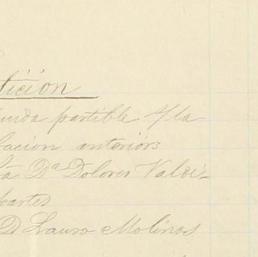 tición
uida partible s/la
lacion anteriors
ta Da Dolores Valdi-
partes
D Lauro Molinos